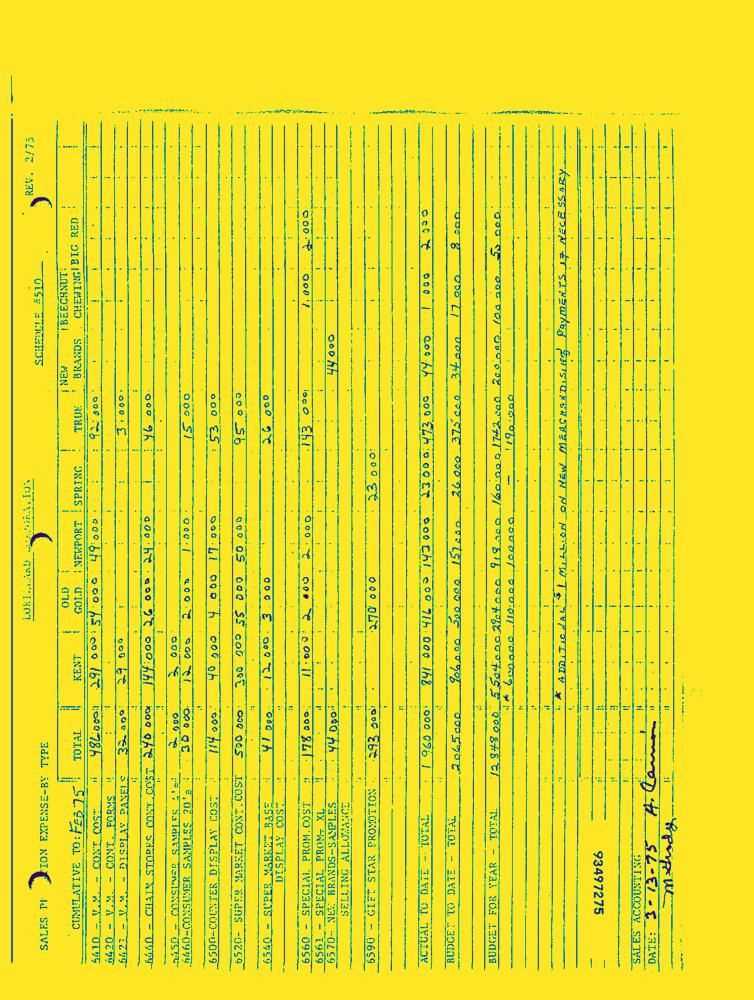 SALES PR ION EXPENSE-BY TYPE LORILLARD CORPORATION SCHEDULE #510 REV. 2/75
CUMULATIVE TO: FEB 75 TOTAL KENT OLD GOLD NEWPORT SPRING TRUE NEW BRANDS BEECHNUT CHEWING BIG RED
6410 - V.M. - CONT. COST 486 000 291 000 54 000 49 000 92 000
6420 - V.M. - CONT. FORMS
6421 - V.M. - DISPLAY PANELS 32 000 29 000 3 000
6440 - CHAIN STORES CONT. COST 240 000 144 000 26 000 24 000 46 000
6450 - CONSUMER SAMPLES 4's 2 000 2 000
6460-CONSUMER SAMPLES 20's 30 000 12 000 2 000 1 000 15 000
6500-COUNTER DISPLAY COST 114 000 40 000 4 000 17 000 53 000
6520- SUPER MARKET CONT. COST 500 000 300 000 55 000 50 000 95 000
6540 - SUPER MARKET BASE DISPLAY COST 41 000 12 000 3 000 26 000
6560 - SPECIAL PROM.COST 178 000 11 000 2 000 2 000 143 000 1 000 2 000
6561 - SPECIAL PROM- XL
6570- NEW BRANDS-SAMPLES 44 000 44 000
SELLING ALLOWANCE
6590 - GIFT STAR PROMOTION 293 000 270 000 23 000
ACTUAL TO DATE - TOTAL 1 960 000 841 000 416 000 143 000 23 000 473 000 44 000 1 000 2 000
BUDGET TO DATE - TOTAL 2 065 000 906 000 500 000 157 000 26 000 375 000 34 000 17 000 8 000
BUDGET FOR YEAR - TOTAL 12 848 000 5 504 000 2904 000 918 000 160 000 1742 000 200 000 100 000 50 000
* 600 000 110 000 100 000 - 190 000
* ADDITIONAL $1 MILLION ON NEW MERCHANDISING PAYMENTS IF NECESSARY
93497275
SALES ACCOUNTING
DATE: 3-13-75